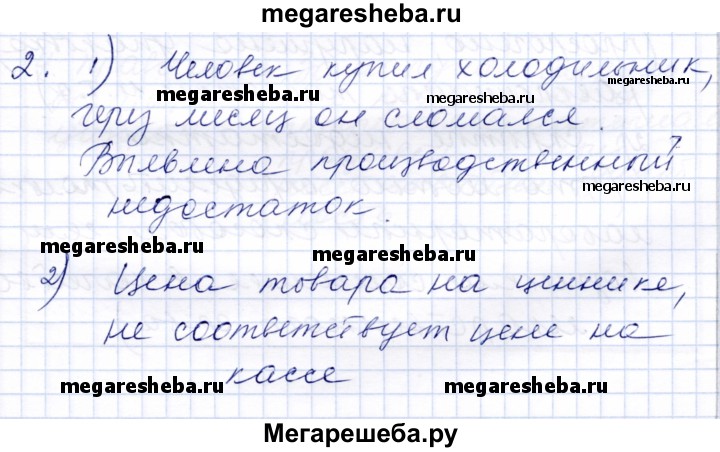 megaresheba.ru
2. 1) Человек купил холодильник,
megaresheba.ru megaresheba.ru
через месяц он сломался.
Выявлена производственный
megaresheba.ru
недостаток.
megaresheba.ru megaresheba.ru
2) Цена товара на ценнике,
не соответствует цене на
кассе
megaresheba.ru megaresheba.ru
Мегарешеба.ру